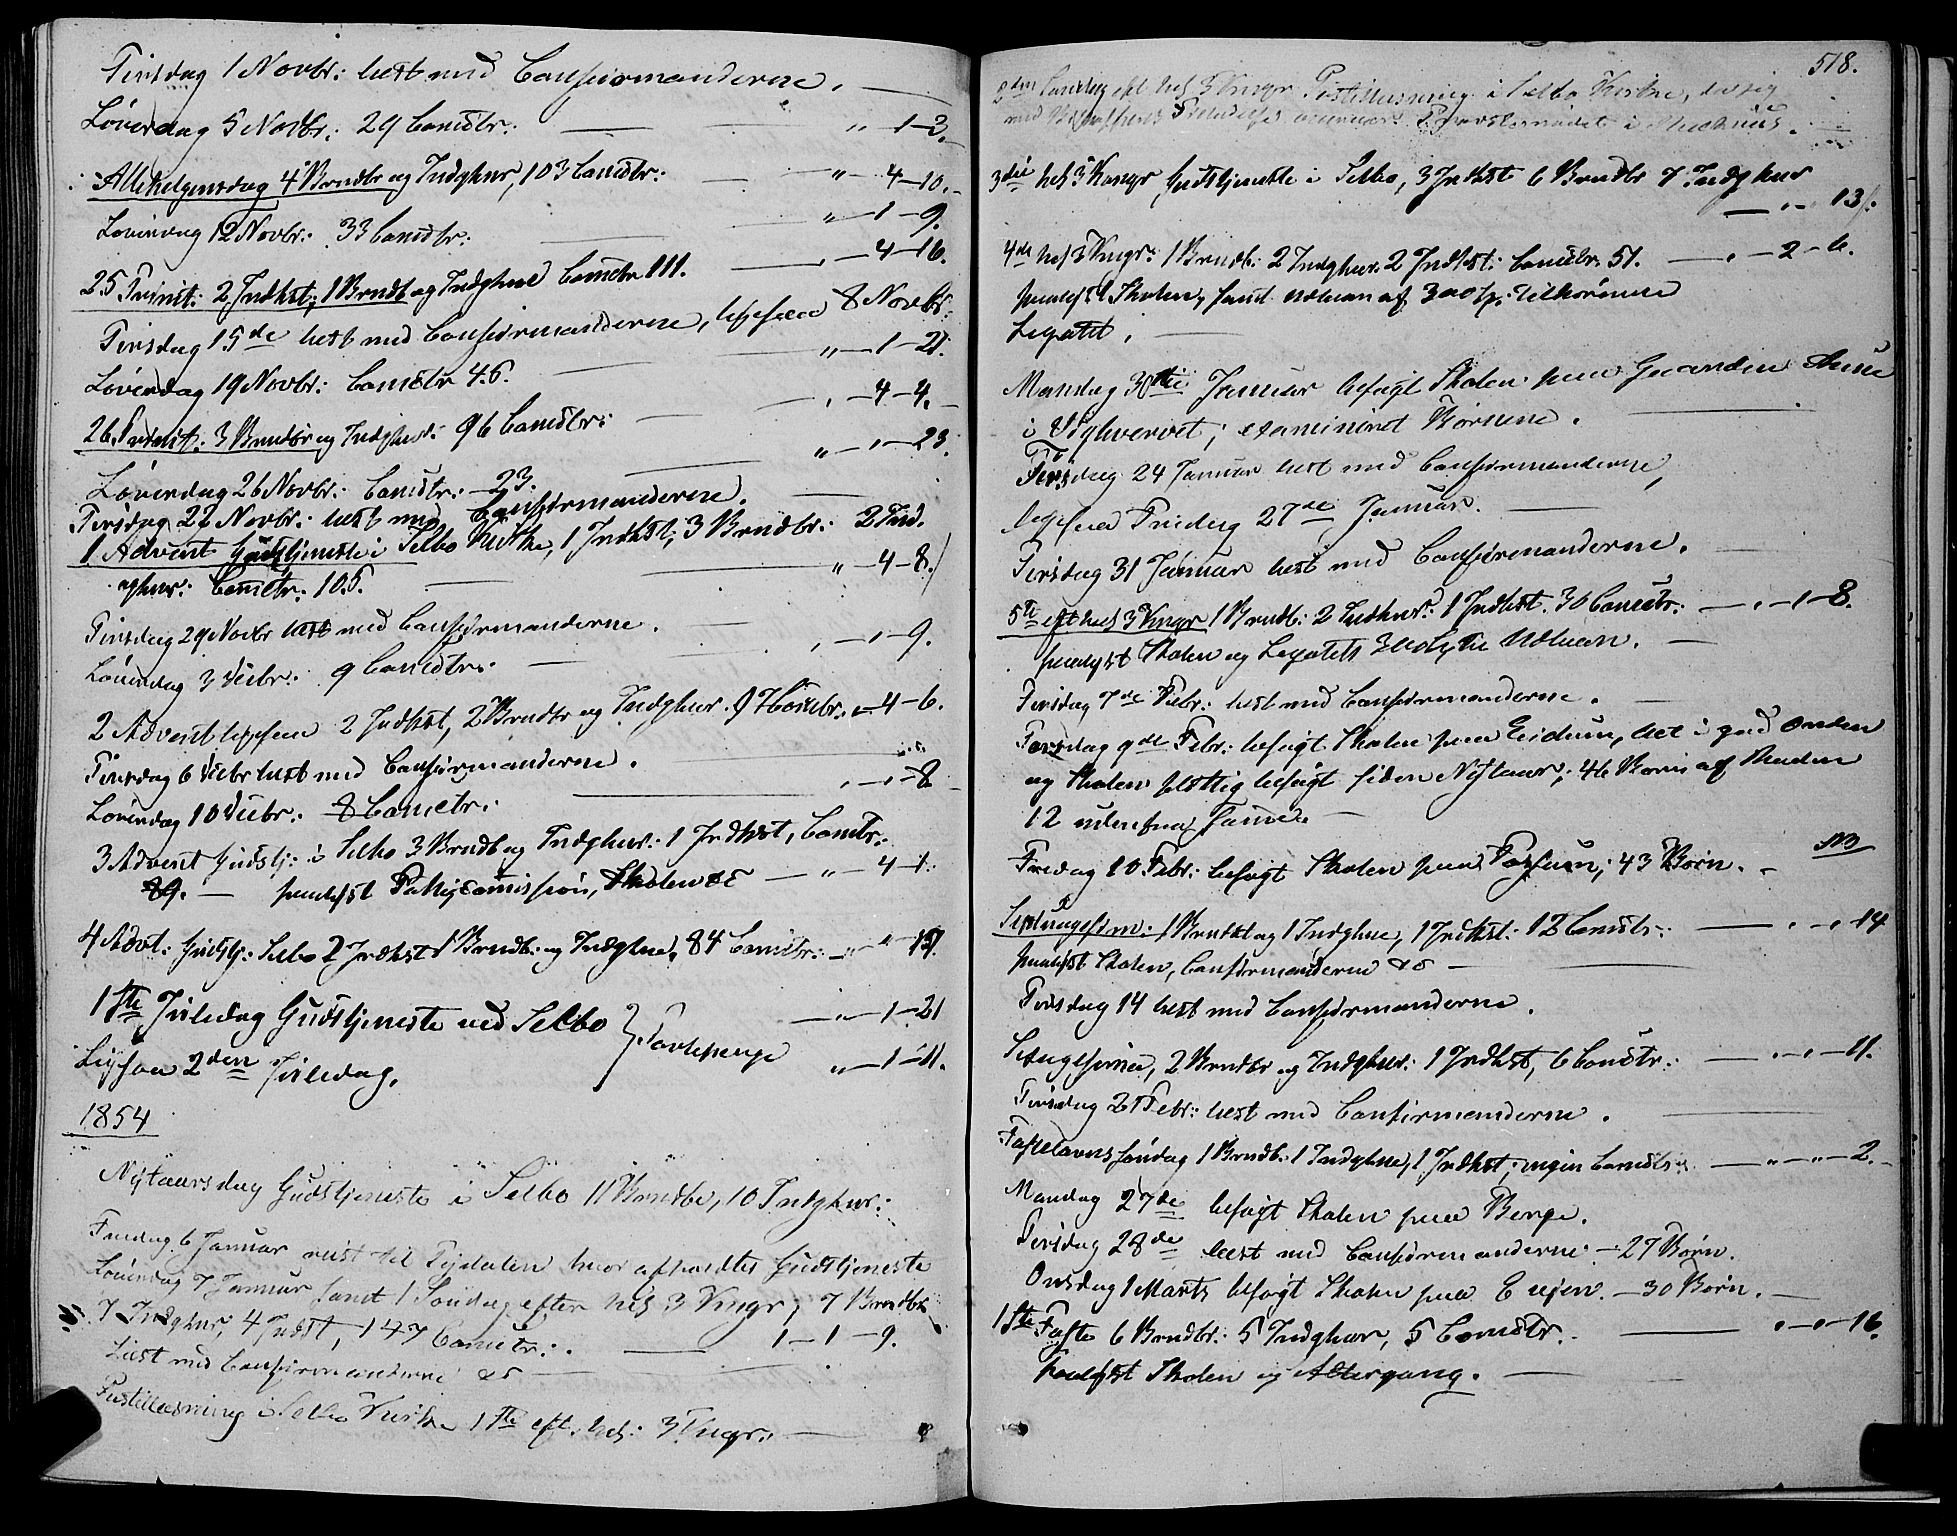 Tirsdag 1 Novbr: læst med Confirmanderne.
Løverdag 5 Novbr: 29 Comctr: — „ — 1 — 3.
Allehelgensdag 4 Brudbr og Indghur, 103 Comctr: — „ — 4 — 10.
Løverdag 12 Novbr: 33 Comctr: — „ — 1 — 9.
25 Trinit: 2 Indhst; 1 Brudb og Indghue Comctr 111. — „ — 4 — 16.
Tirsdag 15de læst med Confirmanderne, ligesaa 8 Novbr:
Løverdag 19 Novbr: Comctr 46. — „ — 1 — 21.
26 Trinit: 3 Brudbr og Indghur: 96 Comctr: — „ — 4 — 4.
Løverdag 26 Novbr: Comctr: 23. — „ — „ — 23.
Tirsdag 22 Novbr: læst med Confirmanderne.
1 Advent Gudstjeneste i Selbo Kirke, 1 Indhst; 3 Brudbr: 2 Ind.
ghur: Comctr: 105. — „ — 4 — 8.
Tirsdag 29 Novbr læst med Confirmanderne.
Løverdag 3 Decbr: 9 Comctr: — „ — „ — 9.
2 Advent ligesaa 2 Indhst, 2 Brudbr og Indghur. — 4 — 6.
Tirsdag 6 Decbr læst med Confirmanderne.
Løverdag 10 Decbr: 8 Comctr: — „ — „ — 8
3 Advent Gudstj: i Selbo 3 Brudb og Indghur: 1 Indhst, Comctr:
89. — paalyst Fattigcomission, Skolen &c — „ — 4 — 1.
4 Advt: Gudstj: Selbo 2 Indhst 1 Brudb: og Indghue, 84 Comctr: — „ — „
1ste Juledag Gudstjeneste ved Selbo — „ — 1 — 21
Ligsaa 2den Juledag. } Tavlepenge „ — 1 — 11.
1854
Nytaarsdag Gudstjeneste i Selbo 11 Brudbr, 10 Indghur:
Fredag 6 Januar reist til Tydalen hvor afholdtes Gudstjeneste
Løverdag 7 Januar samt 1 Søndag efter hel 3 Kngr; 7 Brudbr
7 Indghur, 4 Indst, 147 Comctr: — 1 — 1 — 9.
Læst med Confirmanderne &c
Postillæsning i Selbo Kirke 1ste eft. hel: 3 Kngr: —
518.
2den Søndag eft hel 3 Kngr Postillæsning i Selbo Kirke, da jeg
med
3die hel 3 Kongr Gudstjeneste i Selbo, 3 Indhst 6 Brudbr 7 Indghur
— „ — „ 13.
4de hel 3 Kngr: 1 Brudb: 2 Indghur 2 Indhst: Comctr: 51. — „ — 2 — 6.
paalyst Skolen, samt Udlaan af 300 Sp: tilhørende
Legatet.
Mandag 30te Januar besøgt Skolen paa Gaarden
i Vighvervet; examineret Børnene.
Tirsdag 24 Januar læst med Confirmanderne,
ligesaa Fredag 27de Januar.
Tirsdag 31 Januar læst med Confirmanderne.
5te eft hel 3 Kngr 1 Brudb: 2 Indhur: 1 Indhst. 30 Comctr: — „ — 1 — 8.
paalyst Skolen og Legatets Udlaan.
Tirsdag 7de Febr: læst med Confirmanderne.
Torsdag 9de Febr: besøgt Skolen paa Eidum, det i god Orden
og Skolen flittig besøgt siden Nytaar; 46 Børn af Roden
12 udenfra
Fredag 10 Febr: besøgt Skolen paa Fossum; 43 Børn.
Septuagesim: 1 Brudbt og 1 Indghue, 1 Indhst: 12 Comctr: — „ — „ — 14
paalyst Skolen, Confirmanderne &c —
Tirsdag 14 læst med Confirmanderne.
Sexagesima, 2 Brudbr og Indghur: 1 Indhst, 6 Comctr: — „ — „ — 11.
Tirsdag 21 Febr: læst med Confirmanderne.
Fastelavns Søndag 1 Brudb: 1 Indghue, 1 Indhst; ingen Comctr: — „ — „ — 2.
Mandag 27de besøgt Skolen paa Berge.
Tirsdag 28de læst med Confirmanderne — 27 Børn.
Onsdag 1 Marts besøgt Skolen paa — 30 Børn.
1ste Faste 6 Brudbr: 5 Indghur, 5 Comctr. — „ — „ — 16.
Paalyst Skolen og Altergang.